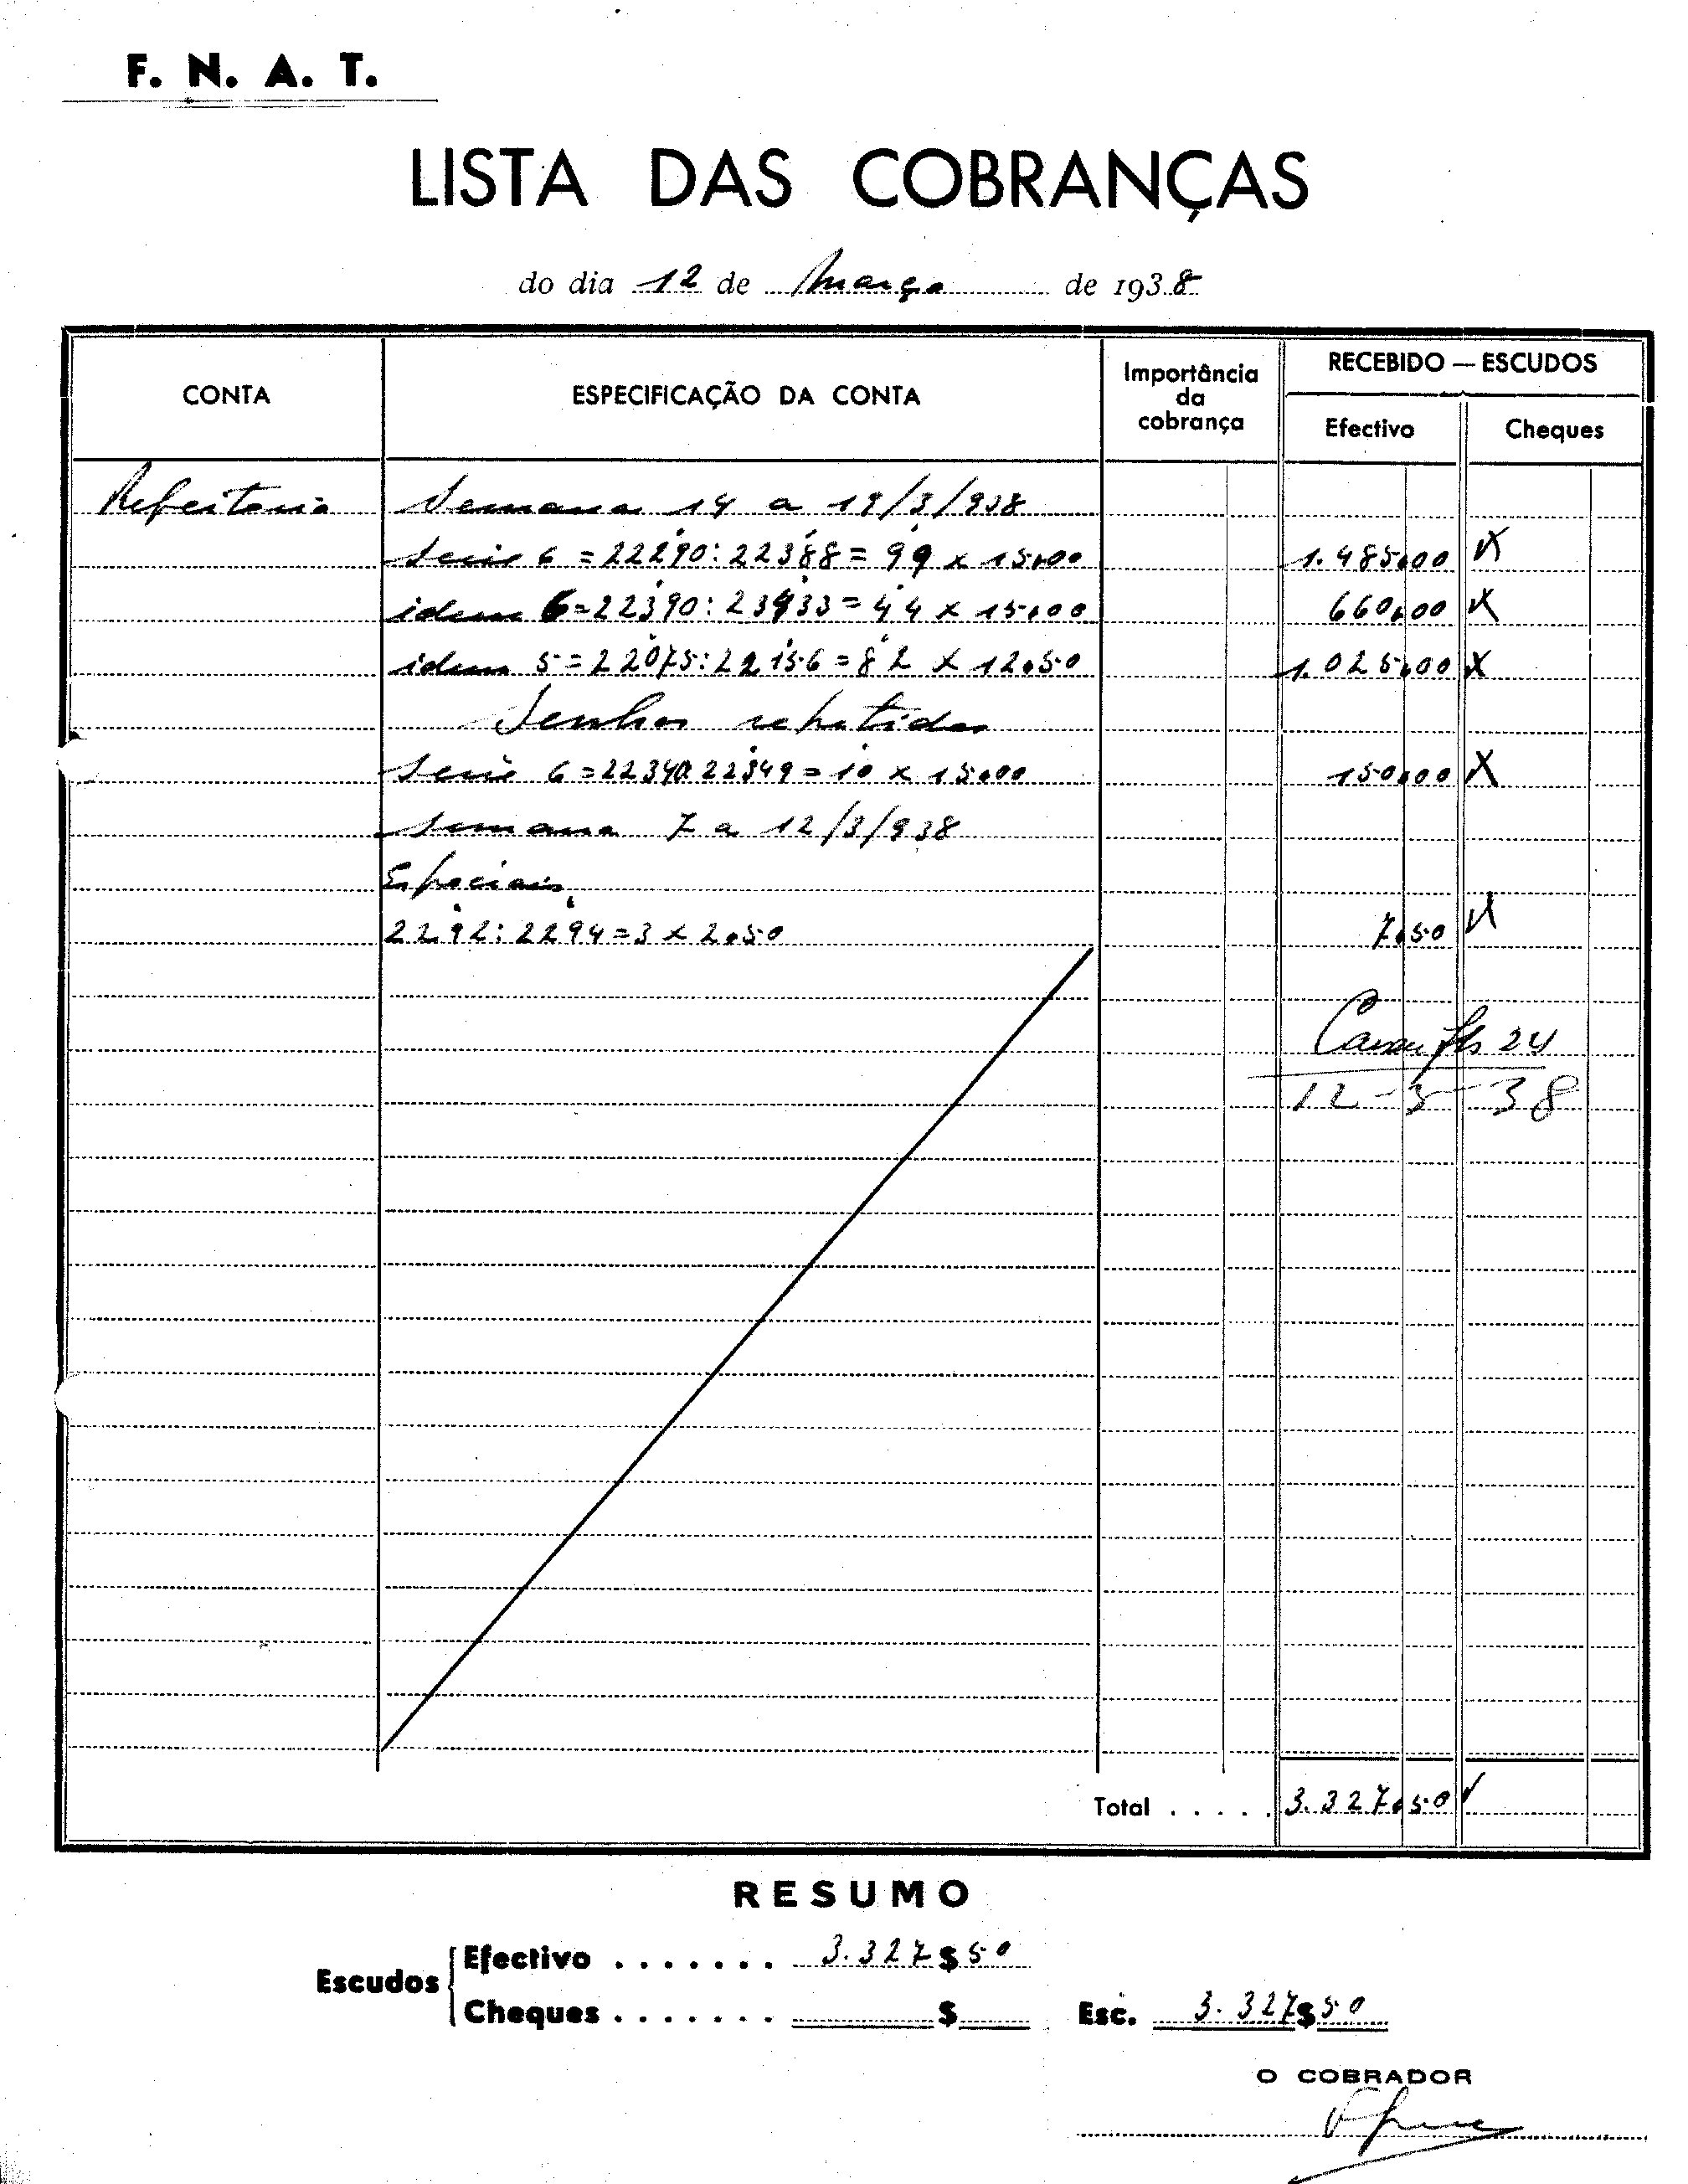 F. N. A. T.
LISTA DAS COBRANÇAS
do dia 12 de Março de 1938
CONTA
ESPECIFICAÇÃO DA CONTA
Importância da cobrança
RECEBIDO — ESCUDOS
Efectivo
Cheques
Refeitorio Semana 14 a 19/3/938
Serie 6 = 22290:22388 = 99 x 15,00 1.485,00
idem 6=22390:23433=44 x 15,00 660,00
idem 5=22075:22156=82 x 12,50 1.025,00
Senhas repetidas
Serie 6=22340:22349=10 x 15,00 150,00
Semana 7 a 12/3/938
Especiais
2292:2294=3 x 2,50 7,50
fls 24
12-3-38
Total ..... 3.327,50
RESUMO
Escudos
Efectivo ....... 3.327$50
Cheques ....... $
Esc. 3.327$50
O COBRADOR